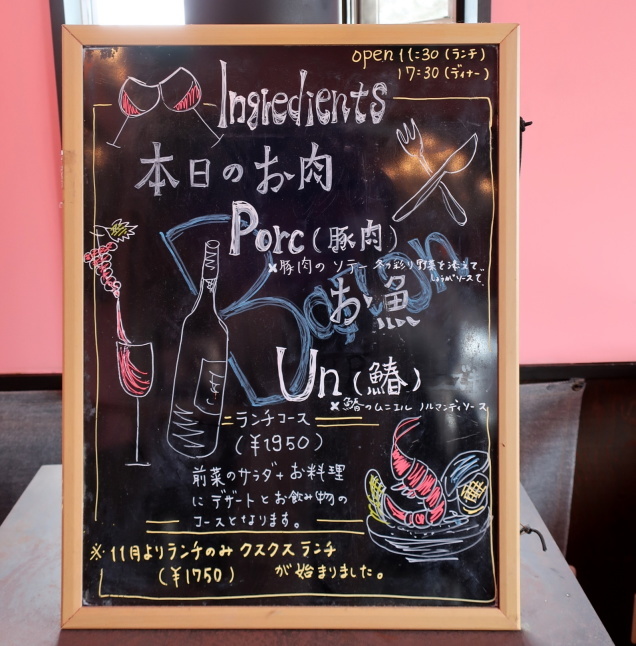 open 11:30 (ランチ)
17:30 (ディナー)
Ingredients
本日のお肉
Porc (豚肉)
×豚肉のソテー 冬の彩り野菜を添えて、
しょうがソースで
お魚
Un (鰆)
×鰆のムニエル ノルマンディソース
=ランチコース=
(¥1950)
前菜のサラダ+お料理
にデザートとお飲み物の
コースとなります。
※11月よりランチのみ クスクスランチ
(¥1750) が始まりました。